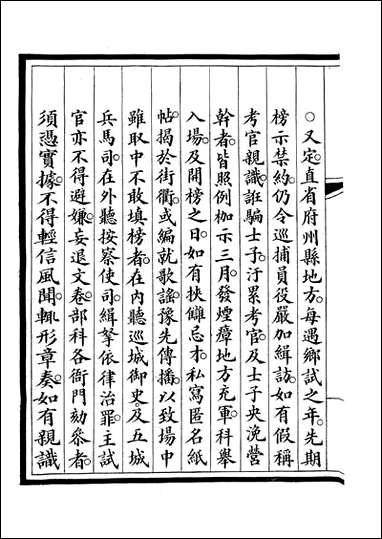 ○又定。直省府州縣地方。每遇鄉試之年。先期
榜示禁約。仍令巡捕員役嚴加緝訪。如有假稱
考官親識。誆騙士子。汙累考官。及士子央浼營
幹者。皆照例枷示三月。發煙瘴地方充軍。科舉
入場。及開榜之日。如有挾讎忌才。私寫匿名紙
帖。揭於街衢。或編就歌謠。豫先傳播。以致場中
雖取中不敢填榜者。在內聽巡城御史。及五城
兵馬司。在外聽按察使司。緝拏依律治罪。主試
官亦不得避嫌妄退文卷。部科各衙門劾參者。
須憑實據。不得輕信風聞。輒形章奏。如有親識